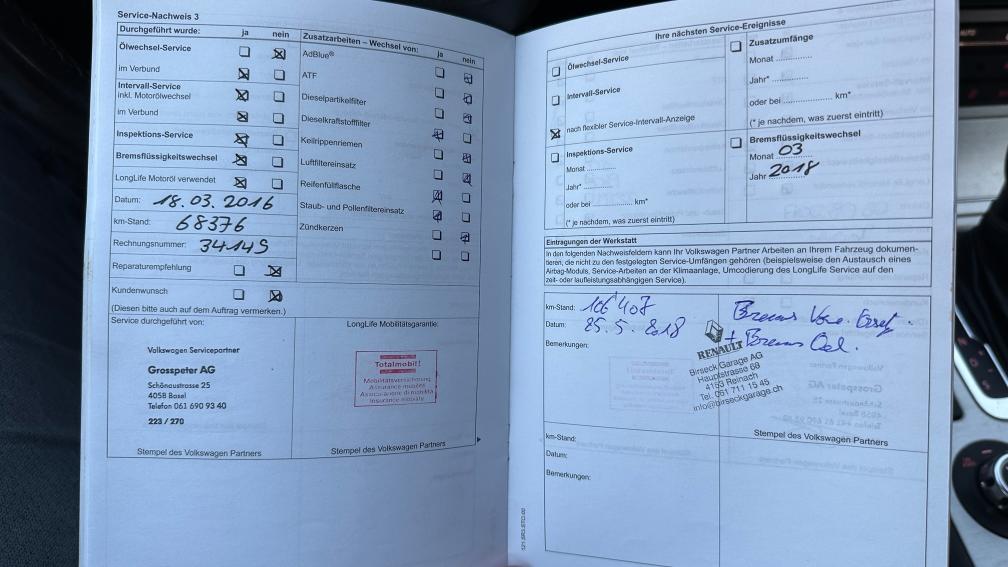 Service-Nachweis 3
Durchgeführt wurde: ja nein
Ölwechsel-Service
im Verbund
Intervall-Service
inkl. Motorölwechsel
im Verbund
Inspektions-Service
Bremsflüssigkeitswechsel
LongLife Motoröl verwendet
Datum: 18.03.2016
km-Stand: 68376
Rechnungsnummer: 34145
Reparaturempfehlung
Kundenwunsch
(Diesen bitte auch auf dem Auftrag vermerken.)
Zusatzarbeiten – Wechsel von: ja nein
AdBlue®
ATF
Dieselpartikelfilter
Dieselkraftstofffilter
Keilrippenriemen
Luftfiltereinsatz
Reifenfüllflasche
Staub- und Pollenfiltereinsatz
Zündkerzen
Service durchgeführt von:
Volkswagen Servicepartner
Grosspeter AG
Schönaustrasse 25
4058 Basel
Telefon 061 690 93 40
223 / 270
Stempel des Volkswagen Partners
LongLife Mobilitätsgarantie:
Totalmobil!
Mobilitätsversicherung
Assurance mobilité
Assicurazione di mobilità
Insurance mobility
Stempel des Volkswagen Partners
Ihre nächsten Service-Ereignisse
Ölwechsel-Service
Intervall-Service
nach flexibler Service-Intervall-Anzeige
Inspektions-Service
Monat .............
Jahr* .............
oder bei ..................... km*
(* je nachdem, was zuerst eintritt)
Zusatzumfänge
Monat .............
Jahr* .............
oder bei ..................... km*
(* je nachdem, was zuerst eintritt)
Bremsflüssigkeitswechsel
Monat 03
Jahr 2018
Eintragungen der Werkstatt
In den folgenden Nachweisfeldern kann Ihr Volkswagen Partner Arbeiten an Ihrem Fahrzeug dokumen-
tieren, die nicht zu den festgelegten Service-Umfängen gehören (beispielsweise den Austausch eines
Airbag-Moduls, Service-Arbeiten an der Klimaanlage, Umcodierung des LongLife Service auf den
zeit- oder laufleistungsabhängigen Service).
km-Stand: 106'407
Datum: 25.5.2018
Bemerkungen:
Brems
+ Brems Oel.
RENAULT
Birseck Garage AG
Hauptstrasse 68
4153 Reinach
Tel. 061 711 15 45
info@birseckgarage.ch
Stempel des Volkswagen Partners
km-Stand:
Datum:
Bemerkungen: